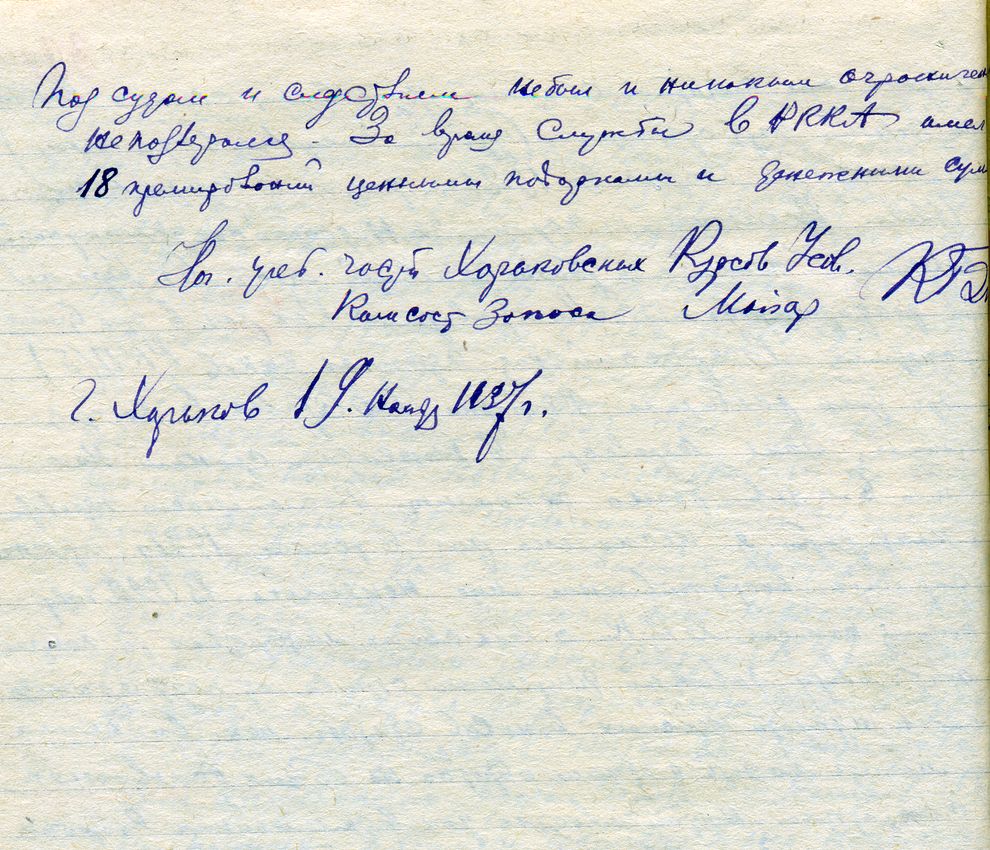 Под судом и следствием небыл и никаким ограничен
неподвергался. За время службы в РККА имел
18 премирований ценными подарками и денежными сум
Нач. учеб. части Харьковских Курсов Усов.
Комсост Запаса Майор
г. Харьков 19. Нояб 1937 г.